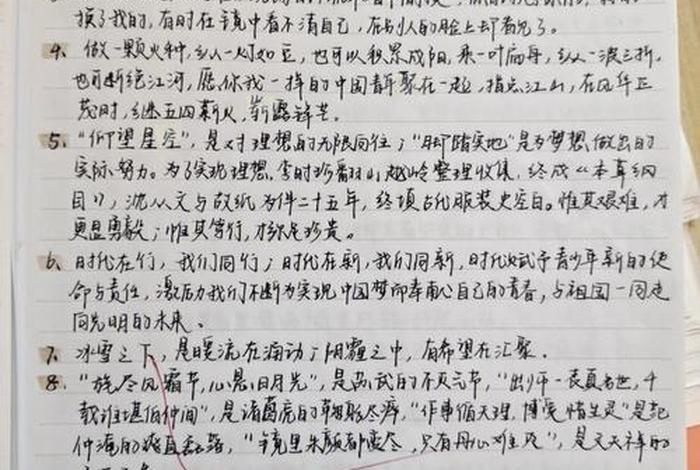 摸了我的,有时在镜中看不清自己,在别人的脸上却看见了。
4、做一颗火种,纵一灯如豆,也可以积累成阳,乘一叶扁舟,纵一波三折,
也可断绝江河,愿你我一样的中国青年聚在一起,指点江山,在风华正
茂时,继五四薪火,崭露锋芒。
5、“仰望星空”,是对理想的无限向往;“脚踏实地”是为梦想做出的
实际努力。为了实现理想,李时珍翻山越岭整理收集,终成《本草纲
目》,沈从文与故纸为伴二十五年,终填古代服装史空白。惟其艰难,才
更显勇毅;惟其笃行,才弥足珍贵。
6、时代在行,我们同行;时代在新,我们同新,时代赋予青少年新的使
命与责任,激励我们不断为实现中国梦而奉献自己的青春,与祖国一同走
向光明的未来。
7、冰雪之下,是暖流在涌动;阴霾之中,有希望在汇聚。
8、“旄尽风霜节,心悬日月光”,是苏武的不灭之节,“出师一表真名世,千
载谁堪伯仲间”,是诸葛亮的鞠躬尽瘁,“作事循天理,博爱惜生灵”是范
仲淹的 “镜里朱颜都变尽,只有丹心难灭”,是文天祥的